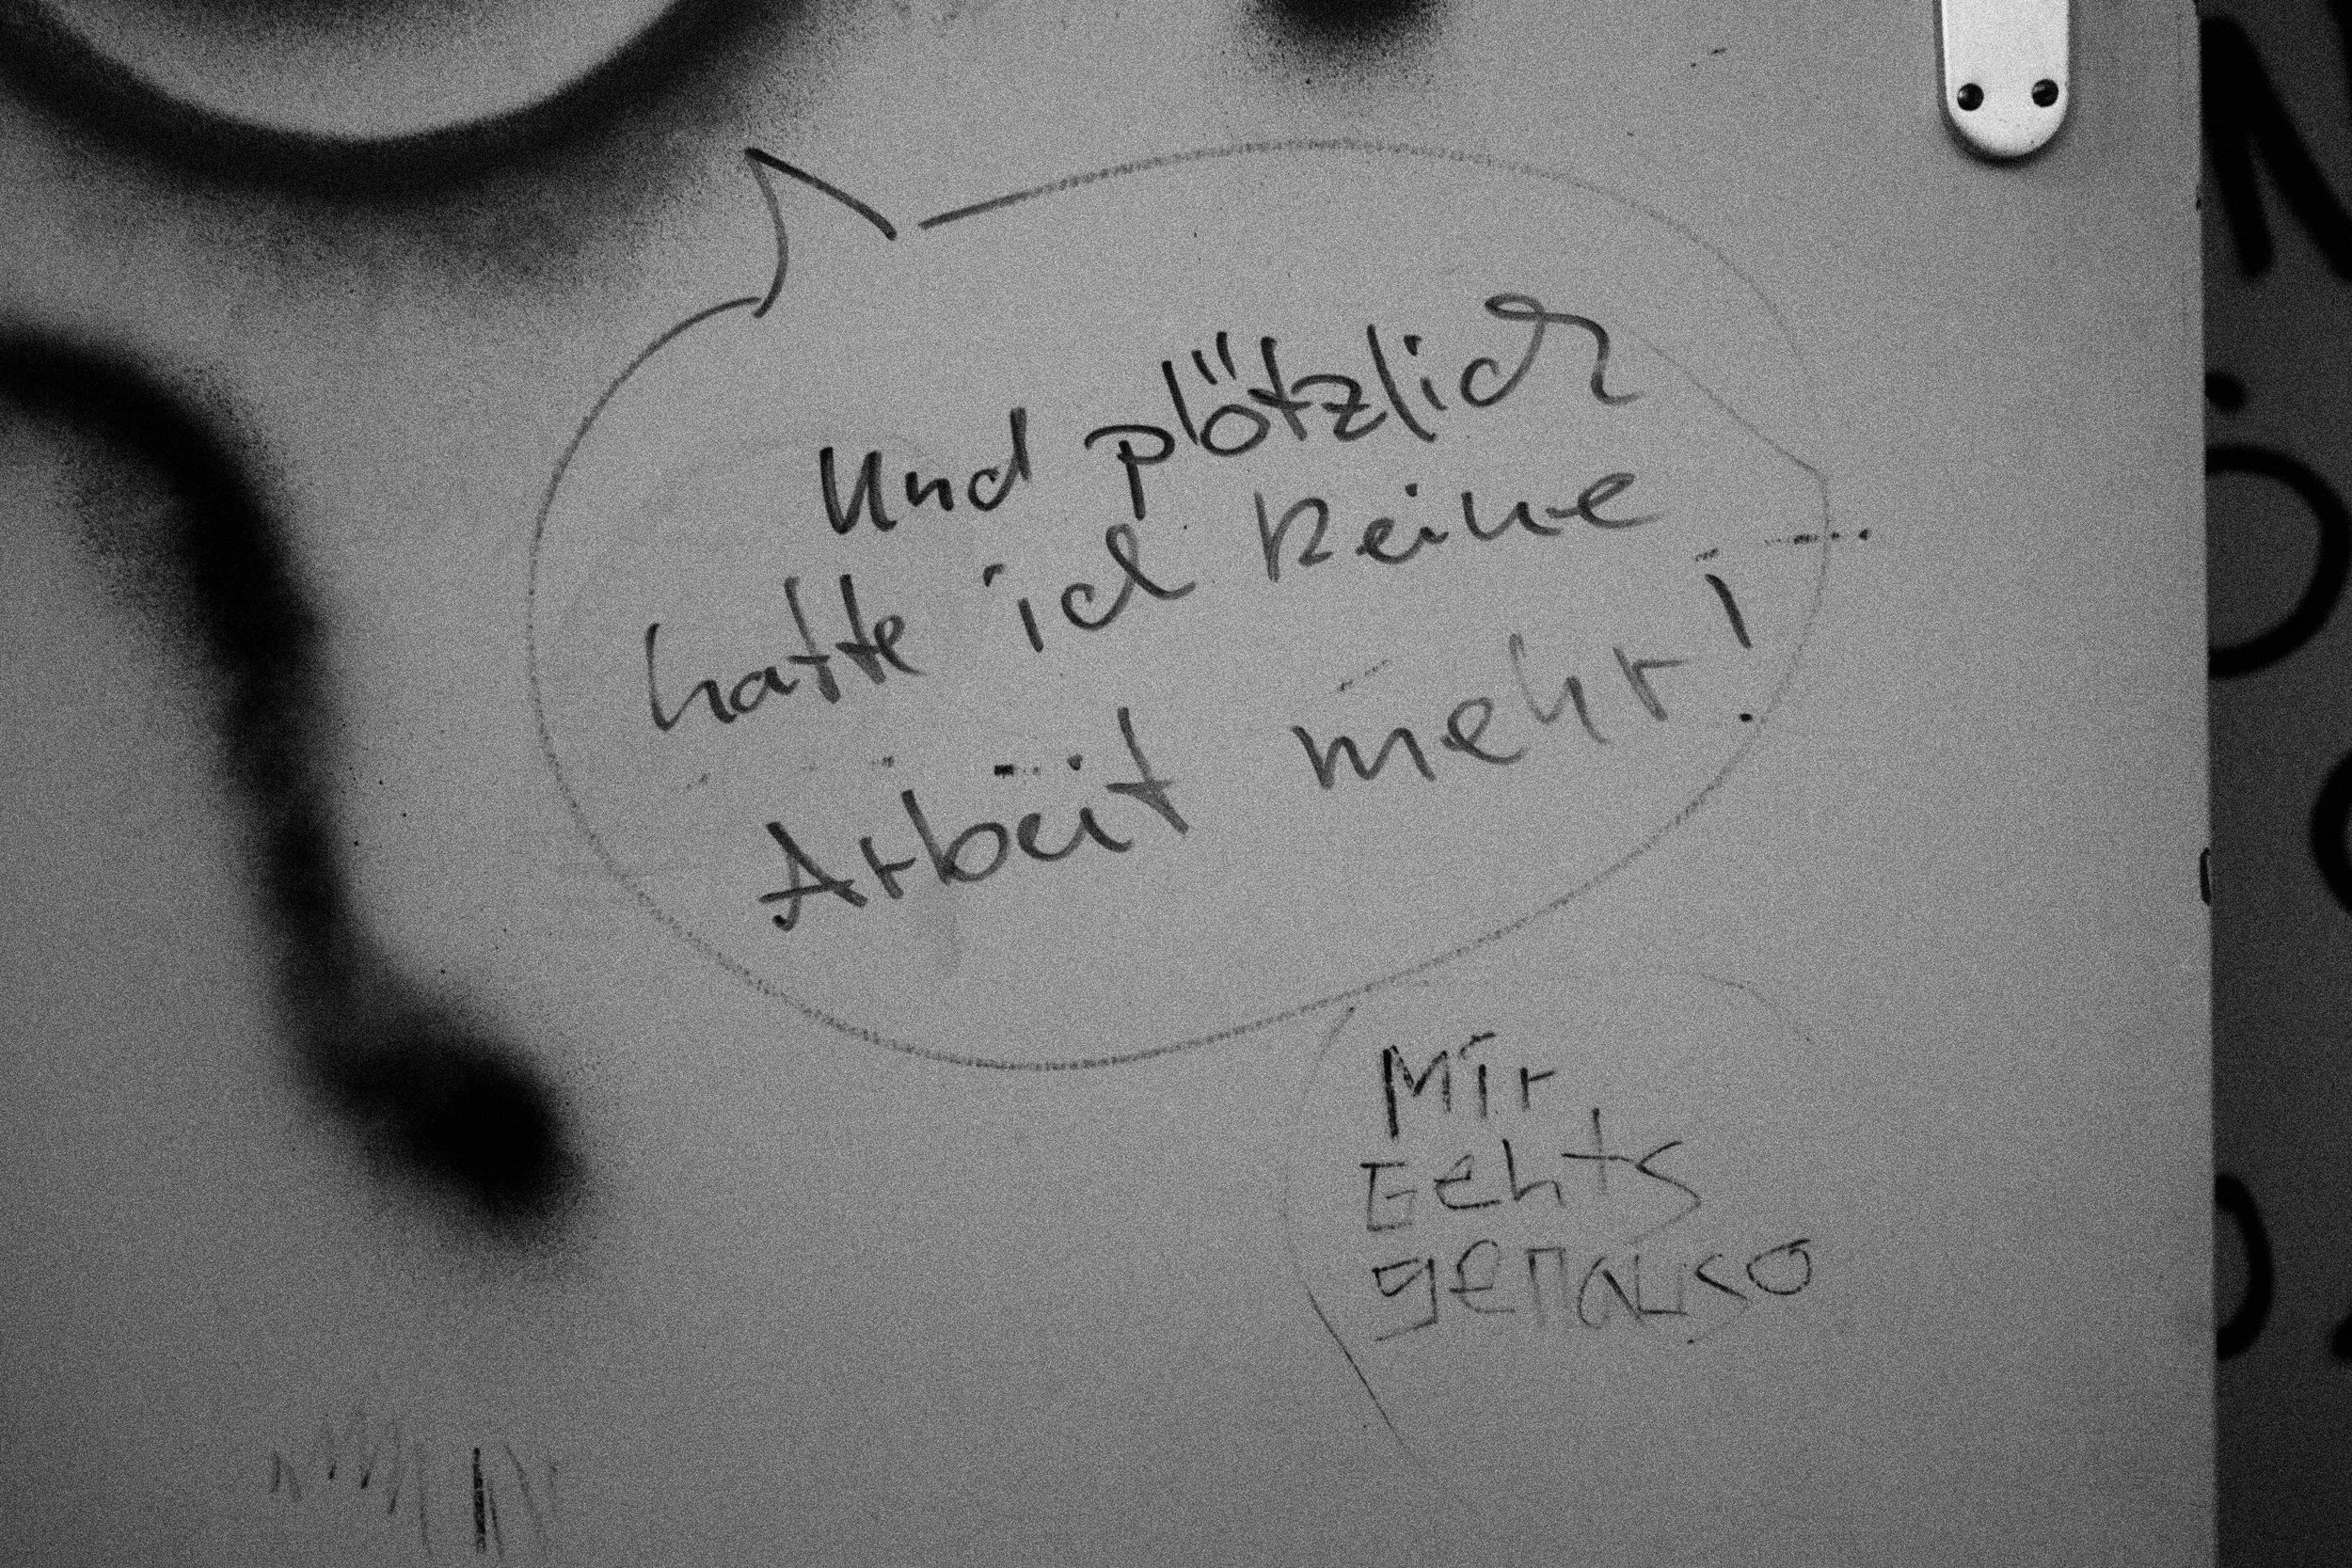 Und plötzlich
hatte ich keine
Arbeit mehr!
Mir
Gehts
genauso